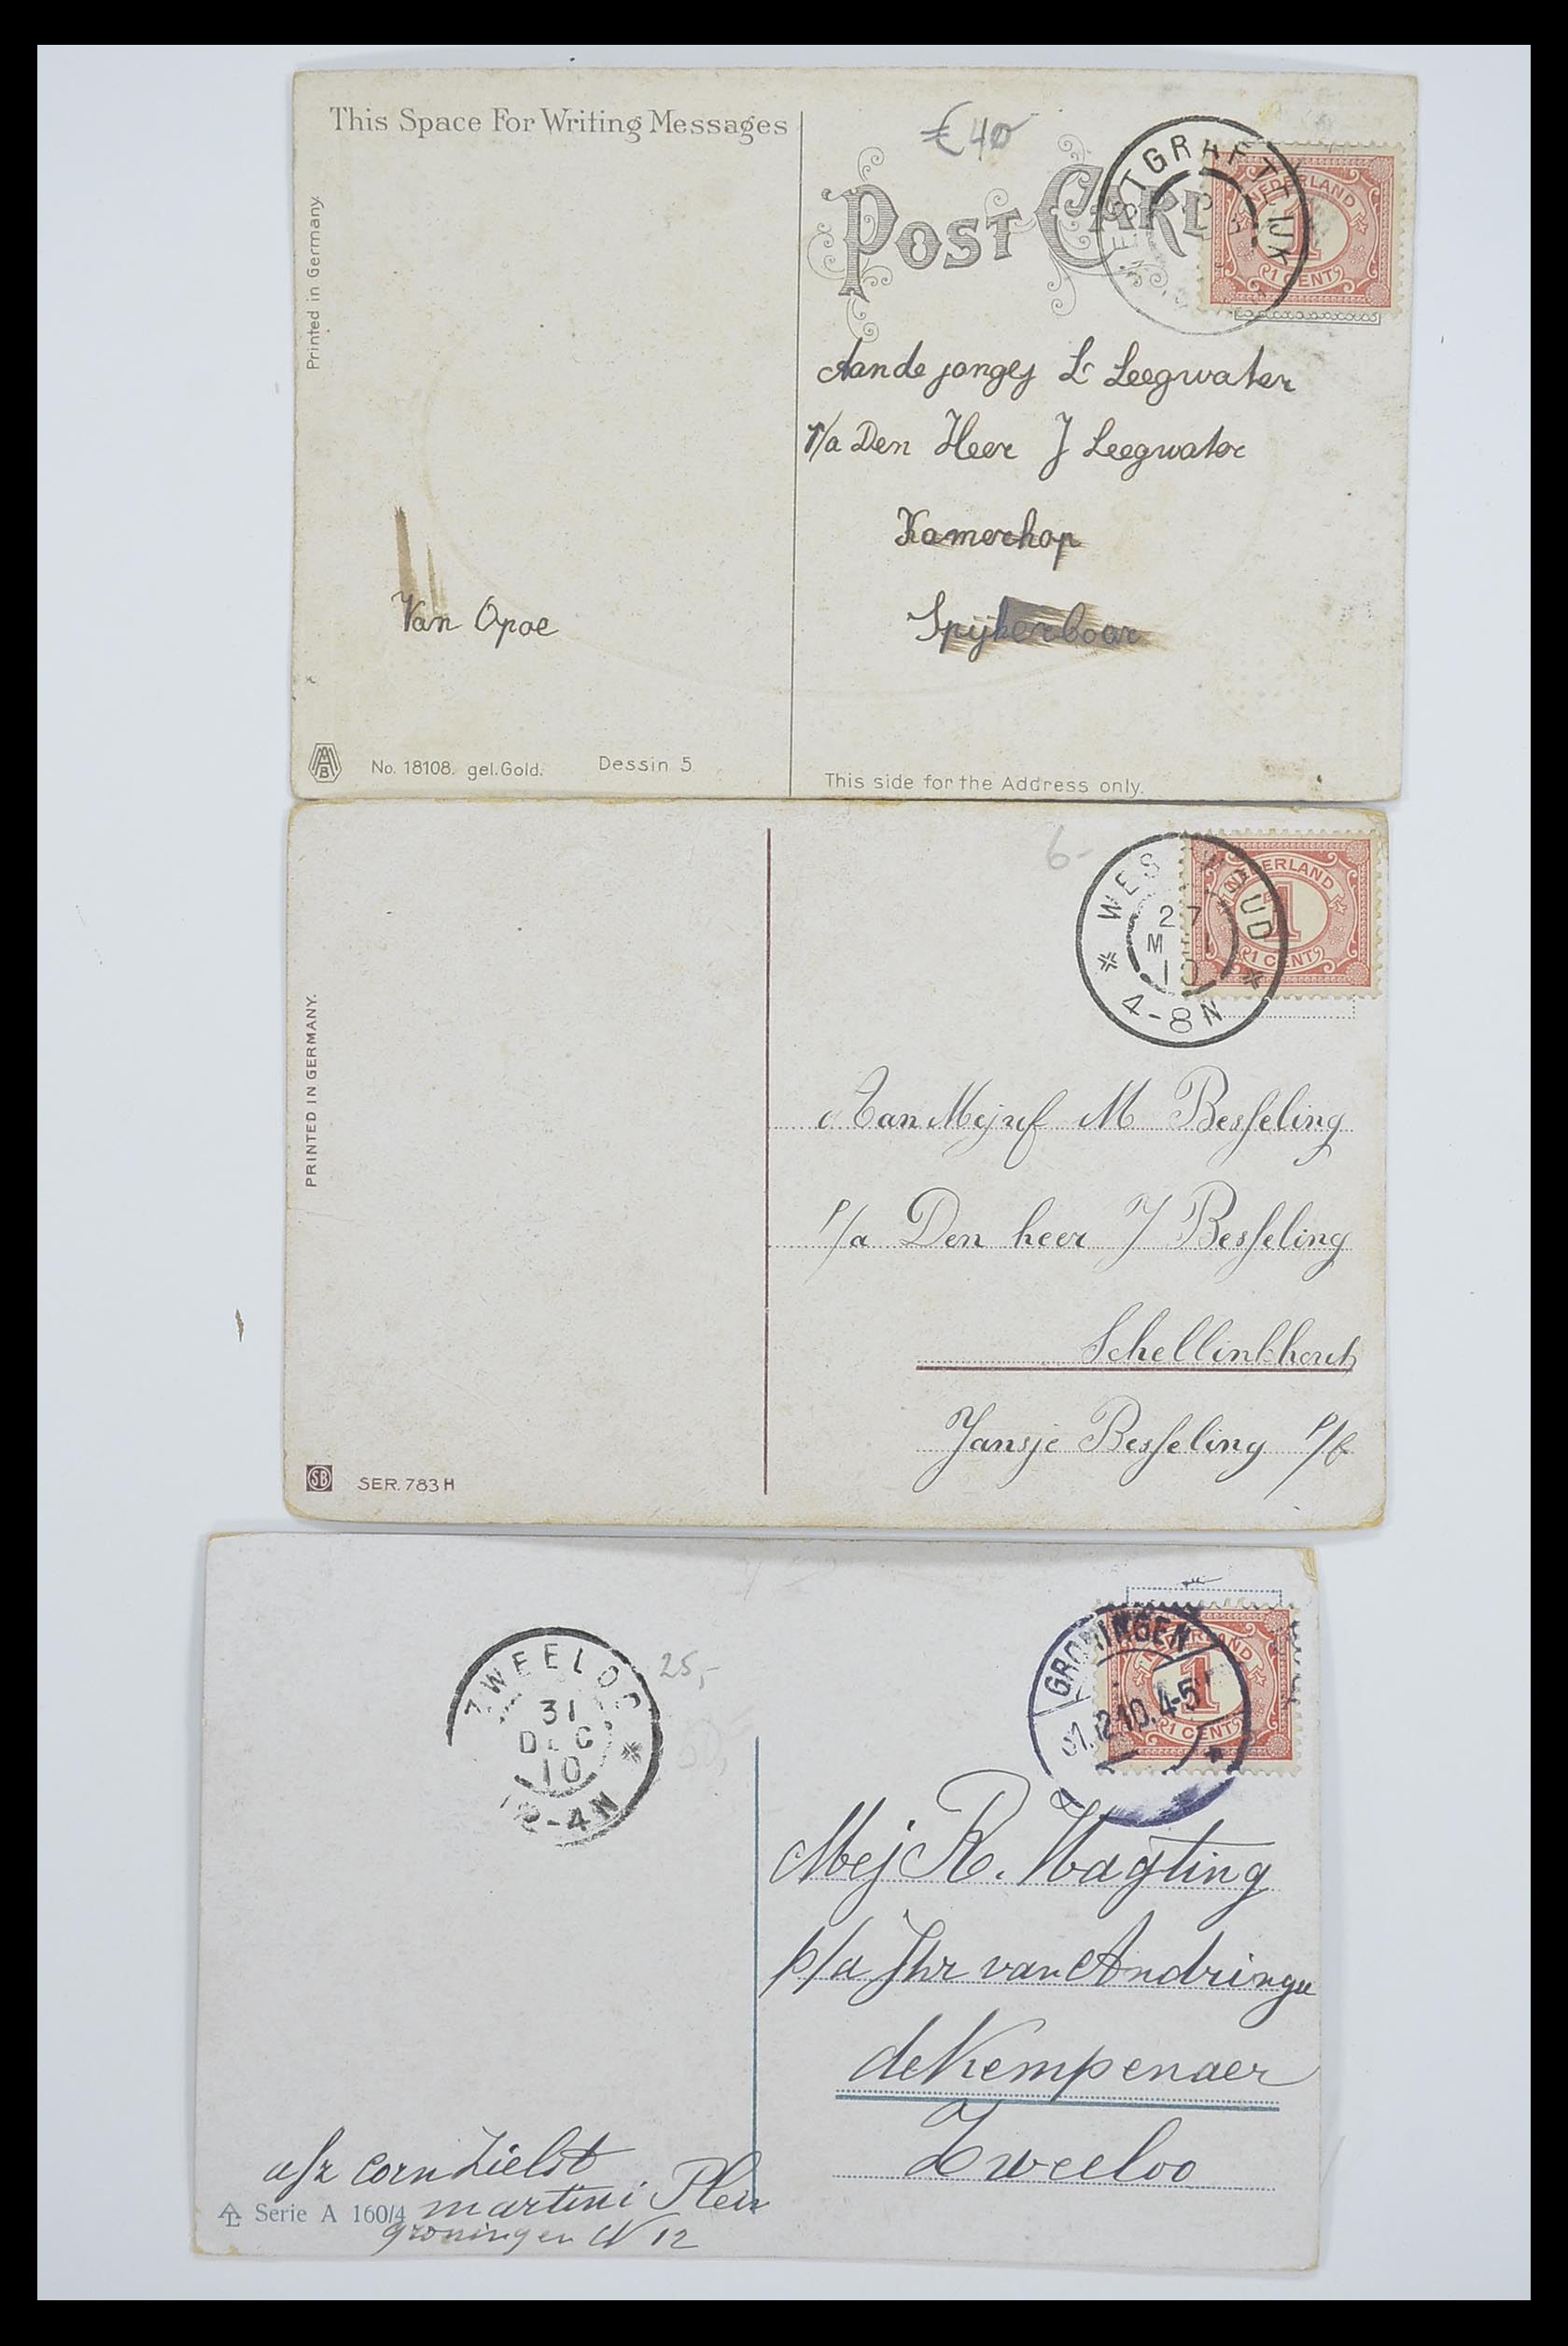 This Space For Writing Messages
€40
POST CARD
GRAFTDIJK
NEDERLAND
1
1 CENT
Printed in Germany.
Aan de jongej L Leegwater
P/a Den Heer J Leegwater
Kamerhop
Spijkerboor
Van Opoe
No. 18108. gel.Gold. Dessin 5
This side for the Address only.
6-
WESTWOUD
27
MEI
10
4-8N
NEDERLAND
1
1 CENT
PRINTED IN GERMANY.
Aan Mejuf M Besseling
P/a Den heer J Besseling
Schellinkhout
Jansje Besseling P/f
SB
SER. 783 H
ZWEELOO
31
DEC
10
12-4N
25,-
GRONINGEN
31.12.10. 4-5
NEDERLAND
1
1 CENT
Mej R. Magting
p/a Jhr van Andringa
de Kempenaer
Zweeloo
afz Corn Zielst
martini Plein
Serie A 160/4
groningen N 12